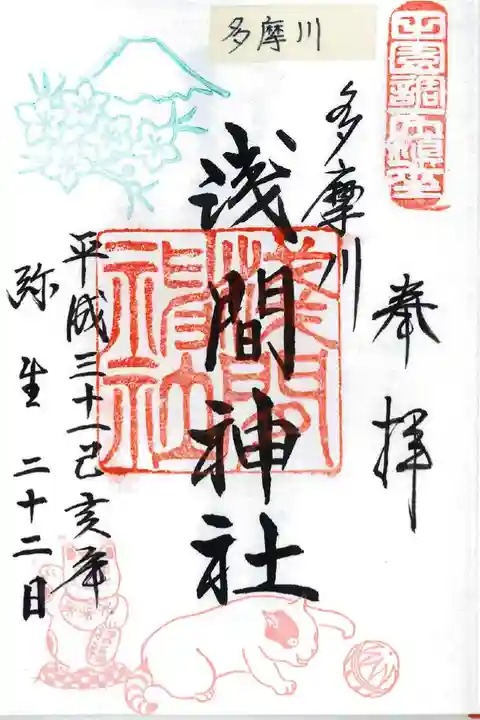 多摩川
奉拝
多摩川
浅間神社
浅間神社
平成三十一己亥年
弥生 二十二日